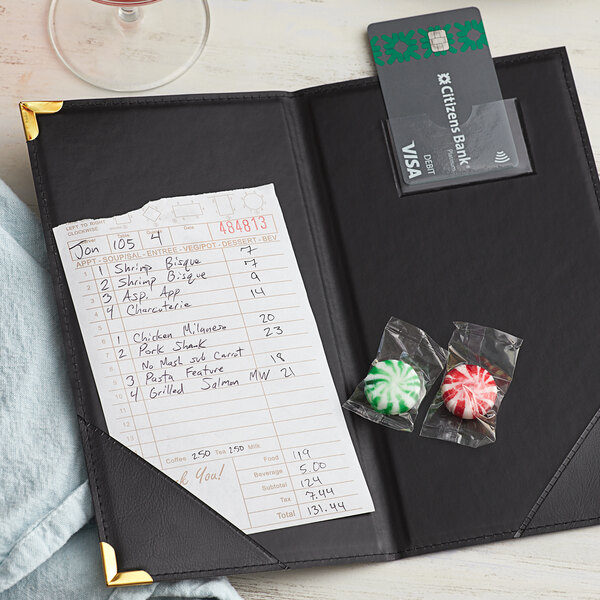 Citizens Bank®
Platinum
DEBIT
VISA
LEFT TO RIGHT
CLOCKWISE
Server Table Guests Date
Jon 105 4 484813
APPT - SOUP/SAL - ENTREE - VEG/POT - DESSERT - BEV
1 1 Shrimp Bisque 7
2 2 Shrimp Bisque 7
3 3 Asp. App 9
4 4 Charcuterie 14
5
6 1 Chicken Milanese 20
7 2 Pork Shank 23
8 No Mash sub Carrot
9 3 Pasta Feature 18
10 4 Grilled Salmon MW 21
11
12
13
Coffee 250 Tea 250 Milk
You!
Food 119
Beverage 5.00
Subtotal 124
Tax 7.44
Total 131.44